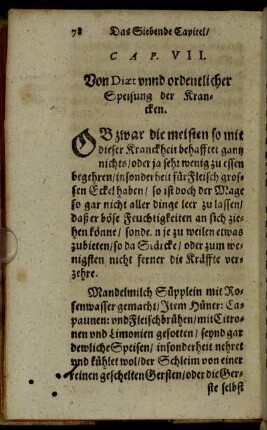 78 Das Siebende Capitel/
CAP. VII.
Von Diæt vnnd ordentlicher
Speisung der Kran-
cken.
OB zwar die meisten so mit
dieser Kranckheit behafftet gantz
nichts/ oder ja sehr wenig zu essen
begehren/ insonderheit für Fleisch gros-
sen Eckel haben/ so ist doch der Mage
so gar nicht aller dinge leer zu lassen/
daß er böse Feuchtigkeiten an sich zie-
hen könne/ sonde. n je zu weilen etwas
zubieten/ so da Stärcke/ oder zum we-
nigsten nicht ferner die Kräffte ver-
zehre.
Mandelmilch Süpplein mit Ro-
senwasser gemacht/ Item Hüner: Ca-
paunen: vnd Fleischbrühen/ mit Citro-
nen vnd Limonien gesotten/ seynd gar
dewliche Speisen/ insonderheit nehret
vnd kühlet wol/ der Schleim von einer
reinen geschelten Gersten/ oder die Ger-
ste selbst